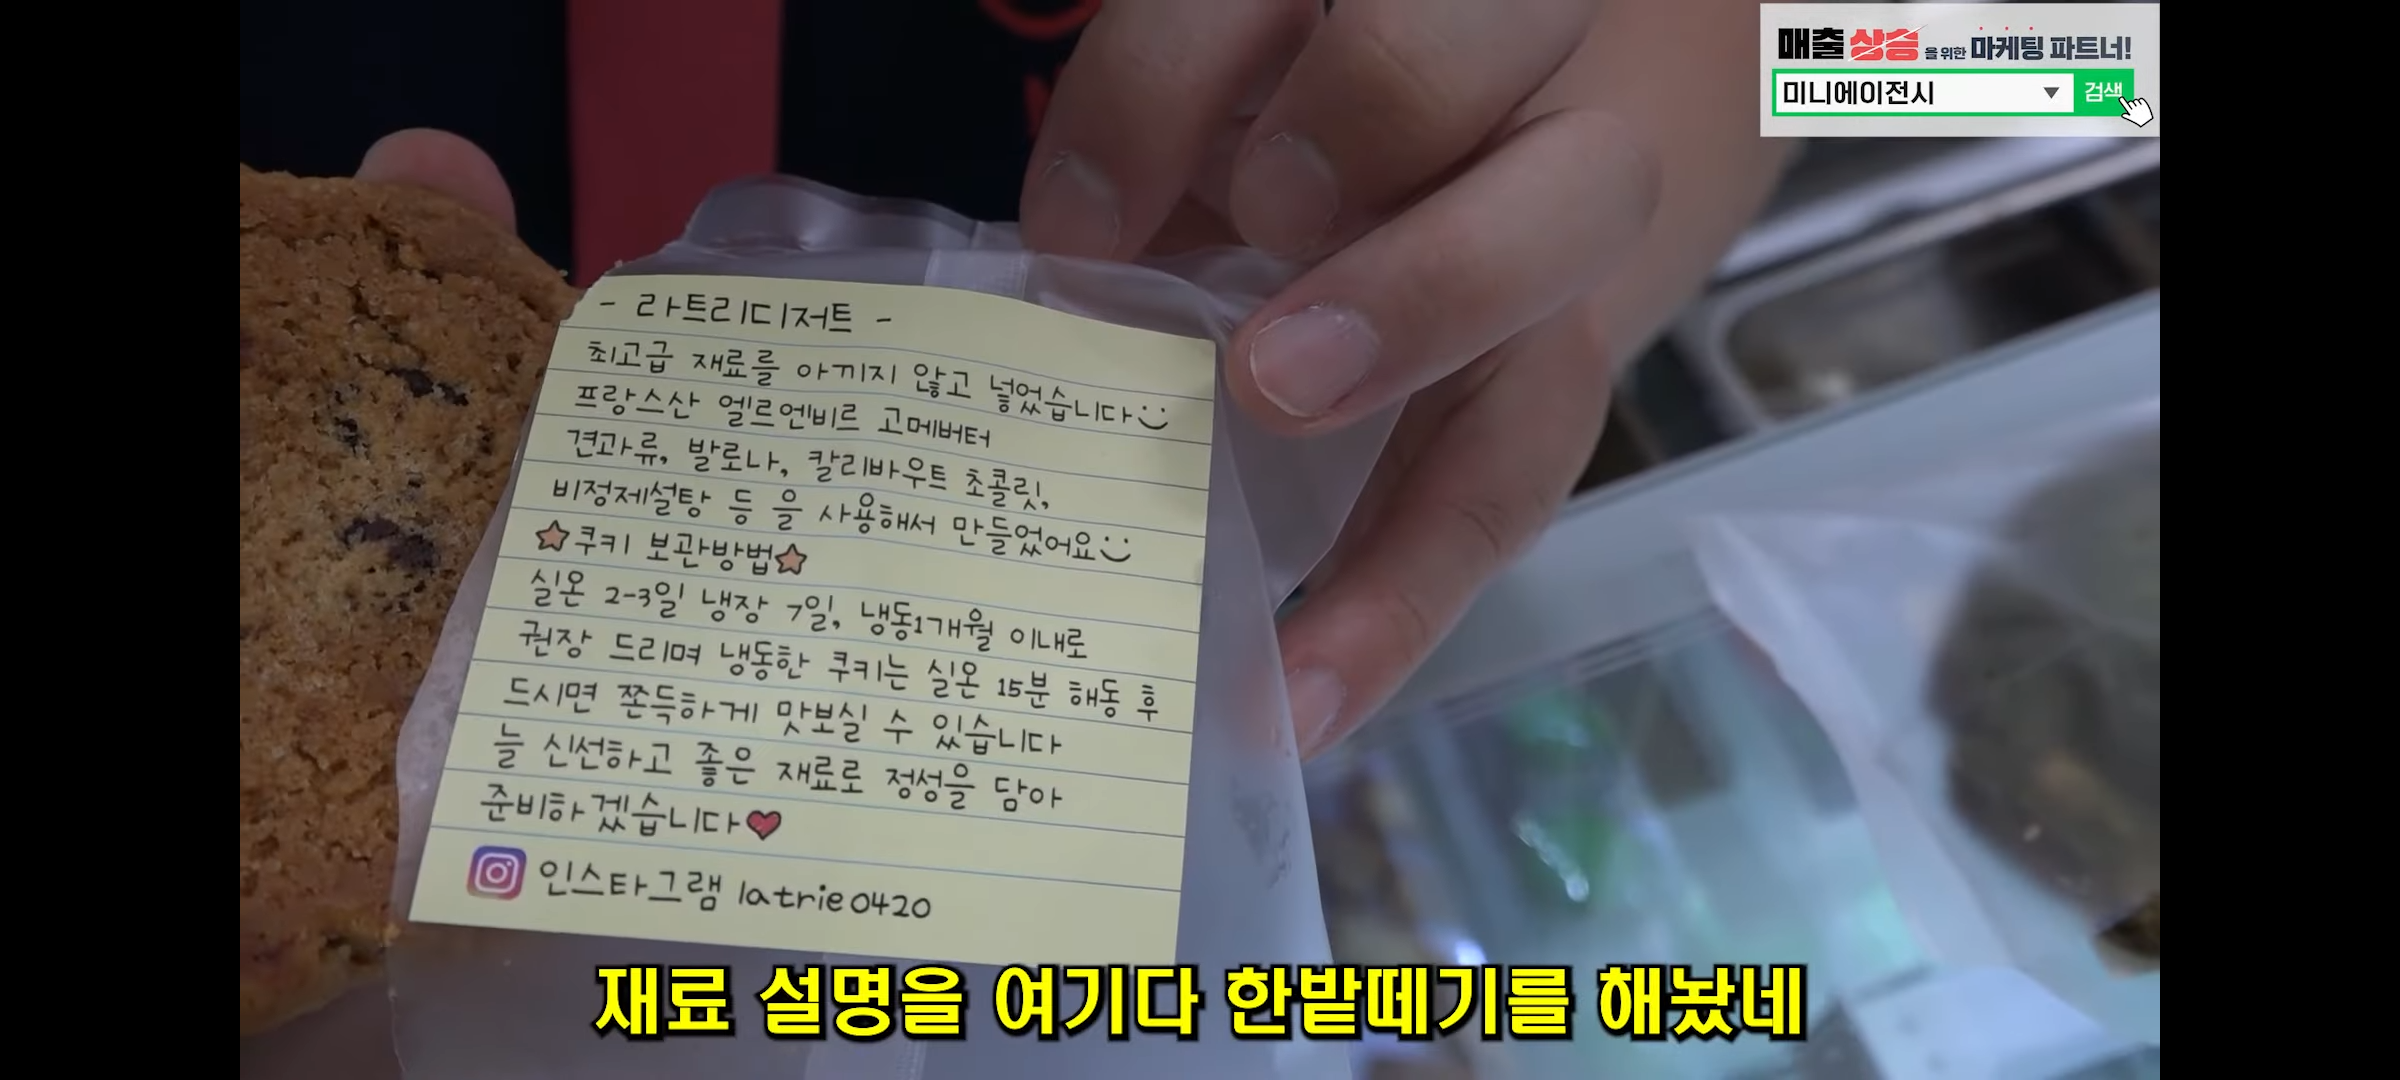 매출 상승을 위한 마케팅 파트너!
미니에이전시
검색
- 라트리디저트 -
최고급 재료를 아끼지 않고 넣었습니다
프랑스산 엘르엔비르 고메버터
견과류, 발로나, 칼리바우트 초콜릿,
비정제설탕 등 을 사용해서 만들었어요
☆쿠키 보관방법☆
실온 2-3일 냉장 7일, 냉동1개월 이내로
권장 드리며 냉동한 쿠키는 실온 15분 해동 후
드시면 쫀득하게 맛보실 수 있습니다
늘 신선하고 좋은 재료로 정성을 담아
준비하겠습니다♥
인스타그램 latrie0420
재료 설명을 여기다 한밭떼기를 해놨네